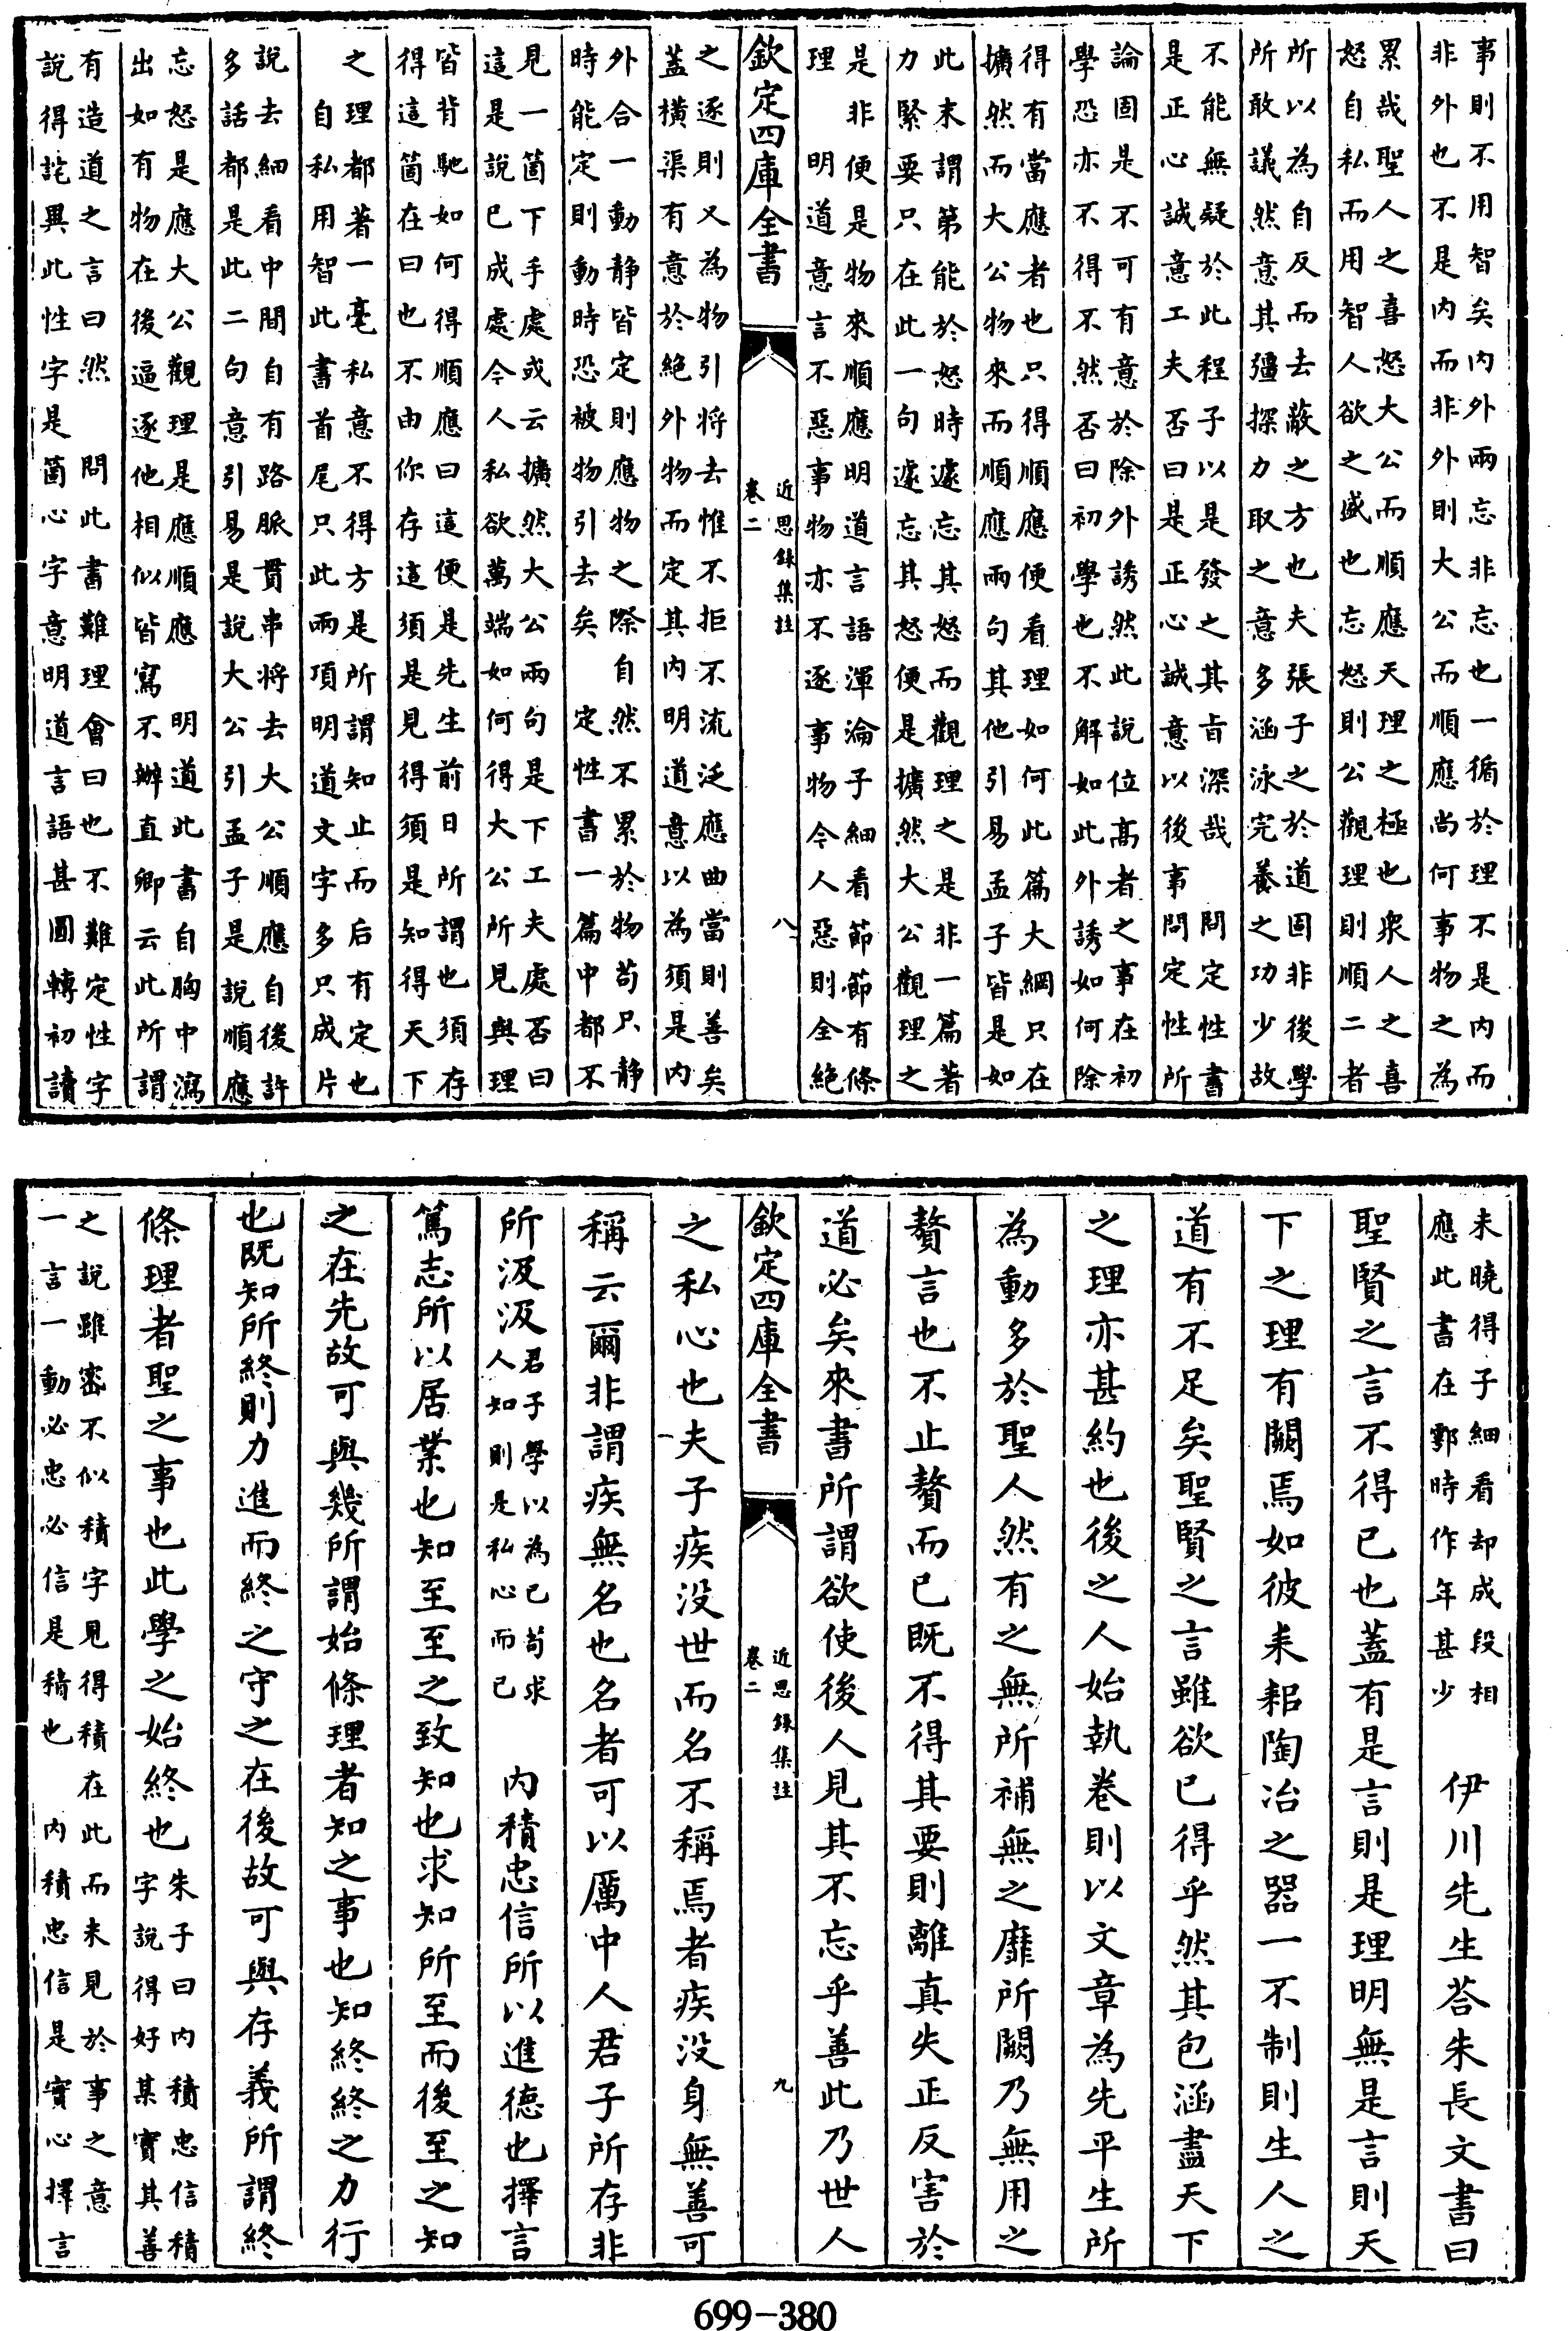 事則不用智矣内外兩忘非忘也一循於理不是内而
非外也不是内而非外則大公而順應尚何事物之為
累哉聖人之喜怒大公而順應天理之極也衆人之喜
怒自私而用智人欲之盛也忘怒則公觀理則順二者
所以為自反而去蔽之方也夫張子之於道固非後學
所敢議然意其彊探力取之意多涵泳完養之功少故
不能無疑於此程子以是發之其旨深哉　問定性書
是正心誠意工夫否曰是正心誠意以後事　問定性所
論固是不可有意於除外誘然此說位高者之事在初
學恐亦不得不然否曰初學也不解如此外誘如何除
得有當應者也只得順應便看理如何此篇大綱只在
擴然而大公物來而順應兩句其他引易孟子皆是如
此末謂第能於怒時遽忘其怒而觀理之是非一篇著
力緊要只在此一句遽忘其怒便是擴然大公觀理之
是非便是物來順應明道言語渾淪子細看節節有條
理　明道意言不惡事物亦不逐事物今人惡則全絶
欽定四庫全書
近思錄集註
卷二
八
之逐則又為物引將去惟不拒不流泛應曲當則善矣
蓋橫渠有意於絶外物而定其内明道意以為須是内
外合一動静皆定則應物之際自然不累於物苟只静
時能定則動時恐被物引去矣　定性書一篇中都不
見一箇下手處或云擴然大公兩句是下工夫處否曰
這是說已成處今人私欲萬端如何得大公所見與理
皆背馳如何得順應曰這便是先生前日所謂也須存
得這箇在曰也不由你存這須是見得須是知得天下
之理都著一毫私意不得方是所謂知止而后有定也
自私用智此書首尾只此兩項明道文字多只成片
說去細看中間自有路脈貫串將去大公順應自後許
多話都是此二句意引易是說大公引孟子是說順應
忘怒是應大公觀理是應順應　明道此書自胸中瀉
出如有物在後逼逐他相似皆寫不辦直卿云此所謂
有造道之言曰然　問此書難理會曰也不難定性字
說得詫異此性字是箇心字意明道言語甚圓轉初讀
未曉得子細看却成段相
應此書在鄠時作年甚少
伊川先生荅朱長文書曰
聖賢之言不得已也蓋有是言則是理明無是言則天
下之理有闕焉如彼耒耜陶冶之器一不制則生人之
道有不足矣聖賢之言雖欲已得乎然其包涵盡天下
之理亦甚約也後之人始執卷則以文章為先平生所
為動多於聖人然有之無所補無之靡所闕乃無用之
贅言也不止贅而已既不得其要則離真失正反害於
道必矣來書所謂欲使後人見其不忘乎善此乃世人
欽定四庫全書
近思錄集註
卷二
九
之私心也夫子疾没世而名不稱焉者疾没身無善可
稱云爾非謂疾無名也名者可以厲中人君子所存非
所汲汲
君子學以為已苟求
人知則是私心而已
内積忠信所以進德也擇言
篤志所以居業也知至至之致知也求知所至而後至之知
之在先故可與幾所謂始條理者知之事也知終終之力行
也既知所終則力進而終之守之在後故可與存義所謂終
條理者聖之事也此學之始終也
朱子曰内積忠信積
字說得好某實其善
之說雖密不似積字見得積在此而未見於事之意
一言一動必忠必信是積也　内積忠信是實心擇言
699-380